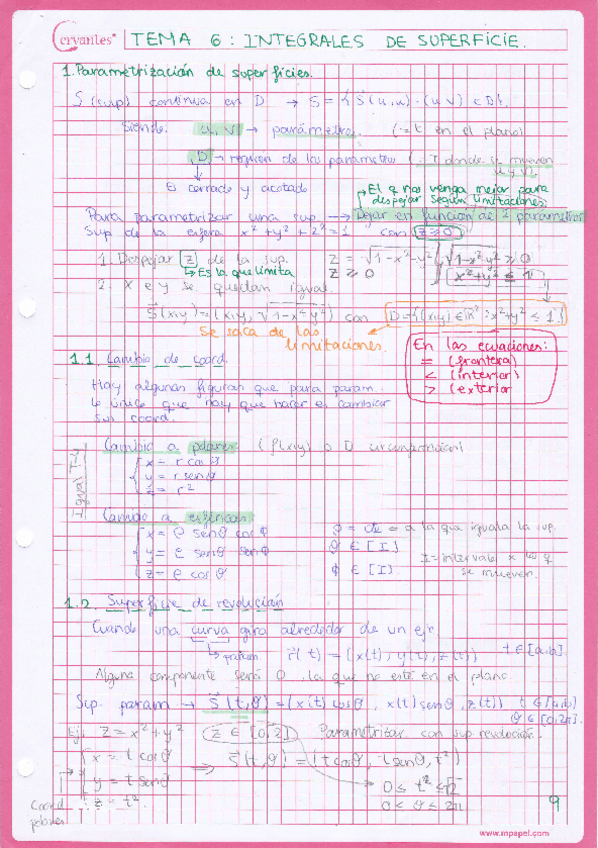 Cervantes® TEMA 6: INTEGRALES DE SUPERFICIE.
1. Parametrización de superficies.
S (sup) continua en D → S = { S(u,v) · (u v) ∈ D }.
Siendo u, v → parámetros (= t en el plano)
D → region de los parametros ( I donde se mueven
u y v).
Es cerrado y acotado
El q nos venga mejor para
despejar según limitaciones.
Para parametrizar una sup. → Dejar en función de 2 parámetros
Sup de la esfera x² + y² + z² = 1 con z ≥ 0
1. Despejar z de la sup. z = √1-x²-y² √1-x²-y² ≥ 0
Es la que limita z ≥ 0 x²+y² ≤ 1
2. x e y se quedan igual.
S(x,y) = (x,y, √1-x²-y²) con D = {(x,y) ∈ ℝ² : x²+y² ≤ 1}
Se saca de las
limitaciones.
En las ecuaciones:
= (frontera)
< (interior)
> (exterior
1.1 Cambio de coord.
Hay algunas figuras que para param.
lo único que hay que hacer es cambiar
sus coord.
Cambio a polares (f(x,y) o D circunferencia)
Igual T-4
x = r cos θ
y = r sen θ
z = r²
Cambio a esféricas
x = ρ sen θ cos φ
y = ρ sen θ sen φ
z = ρ cos θ
a la que iguala la sup.
θ ∈ [I]
φ ∈ [I].
I = intervalo x lo q
se mueven.
1.2. Superficie de revolución
Cuando una curva gira alrededor de un eje
param r(t) = (x(t), y(t), z(t)) t ∈ [a,b].
Alguna componente será 0, la que no esté en el plano.
Sup. param → S(t,θ) = (x(t) cos θ, x(t) sen θ, z(t)) t ∈ [a,b]
θ ∈ [0,2π].
Ej: z = x² + y² z ∈ [0,2] Parametrizar con sup revolución.
x = t cos θ
y = t sen θ ⇒ S(t,θ) = (t cos θ, t sen θ, t²)
z = t²
0 ≤ t² ≤ √2
0 < θ ≤ 2π
Coord
polares
9
www.mpapel.com